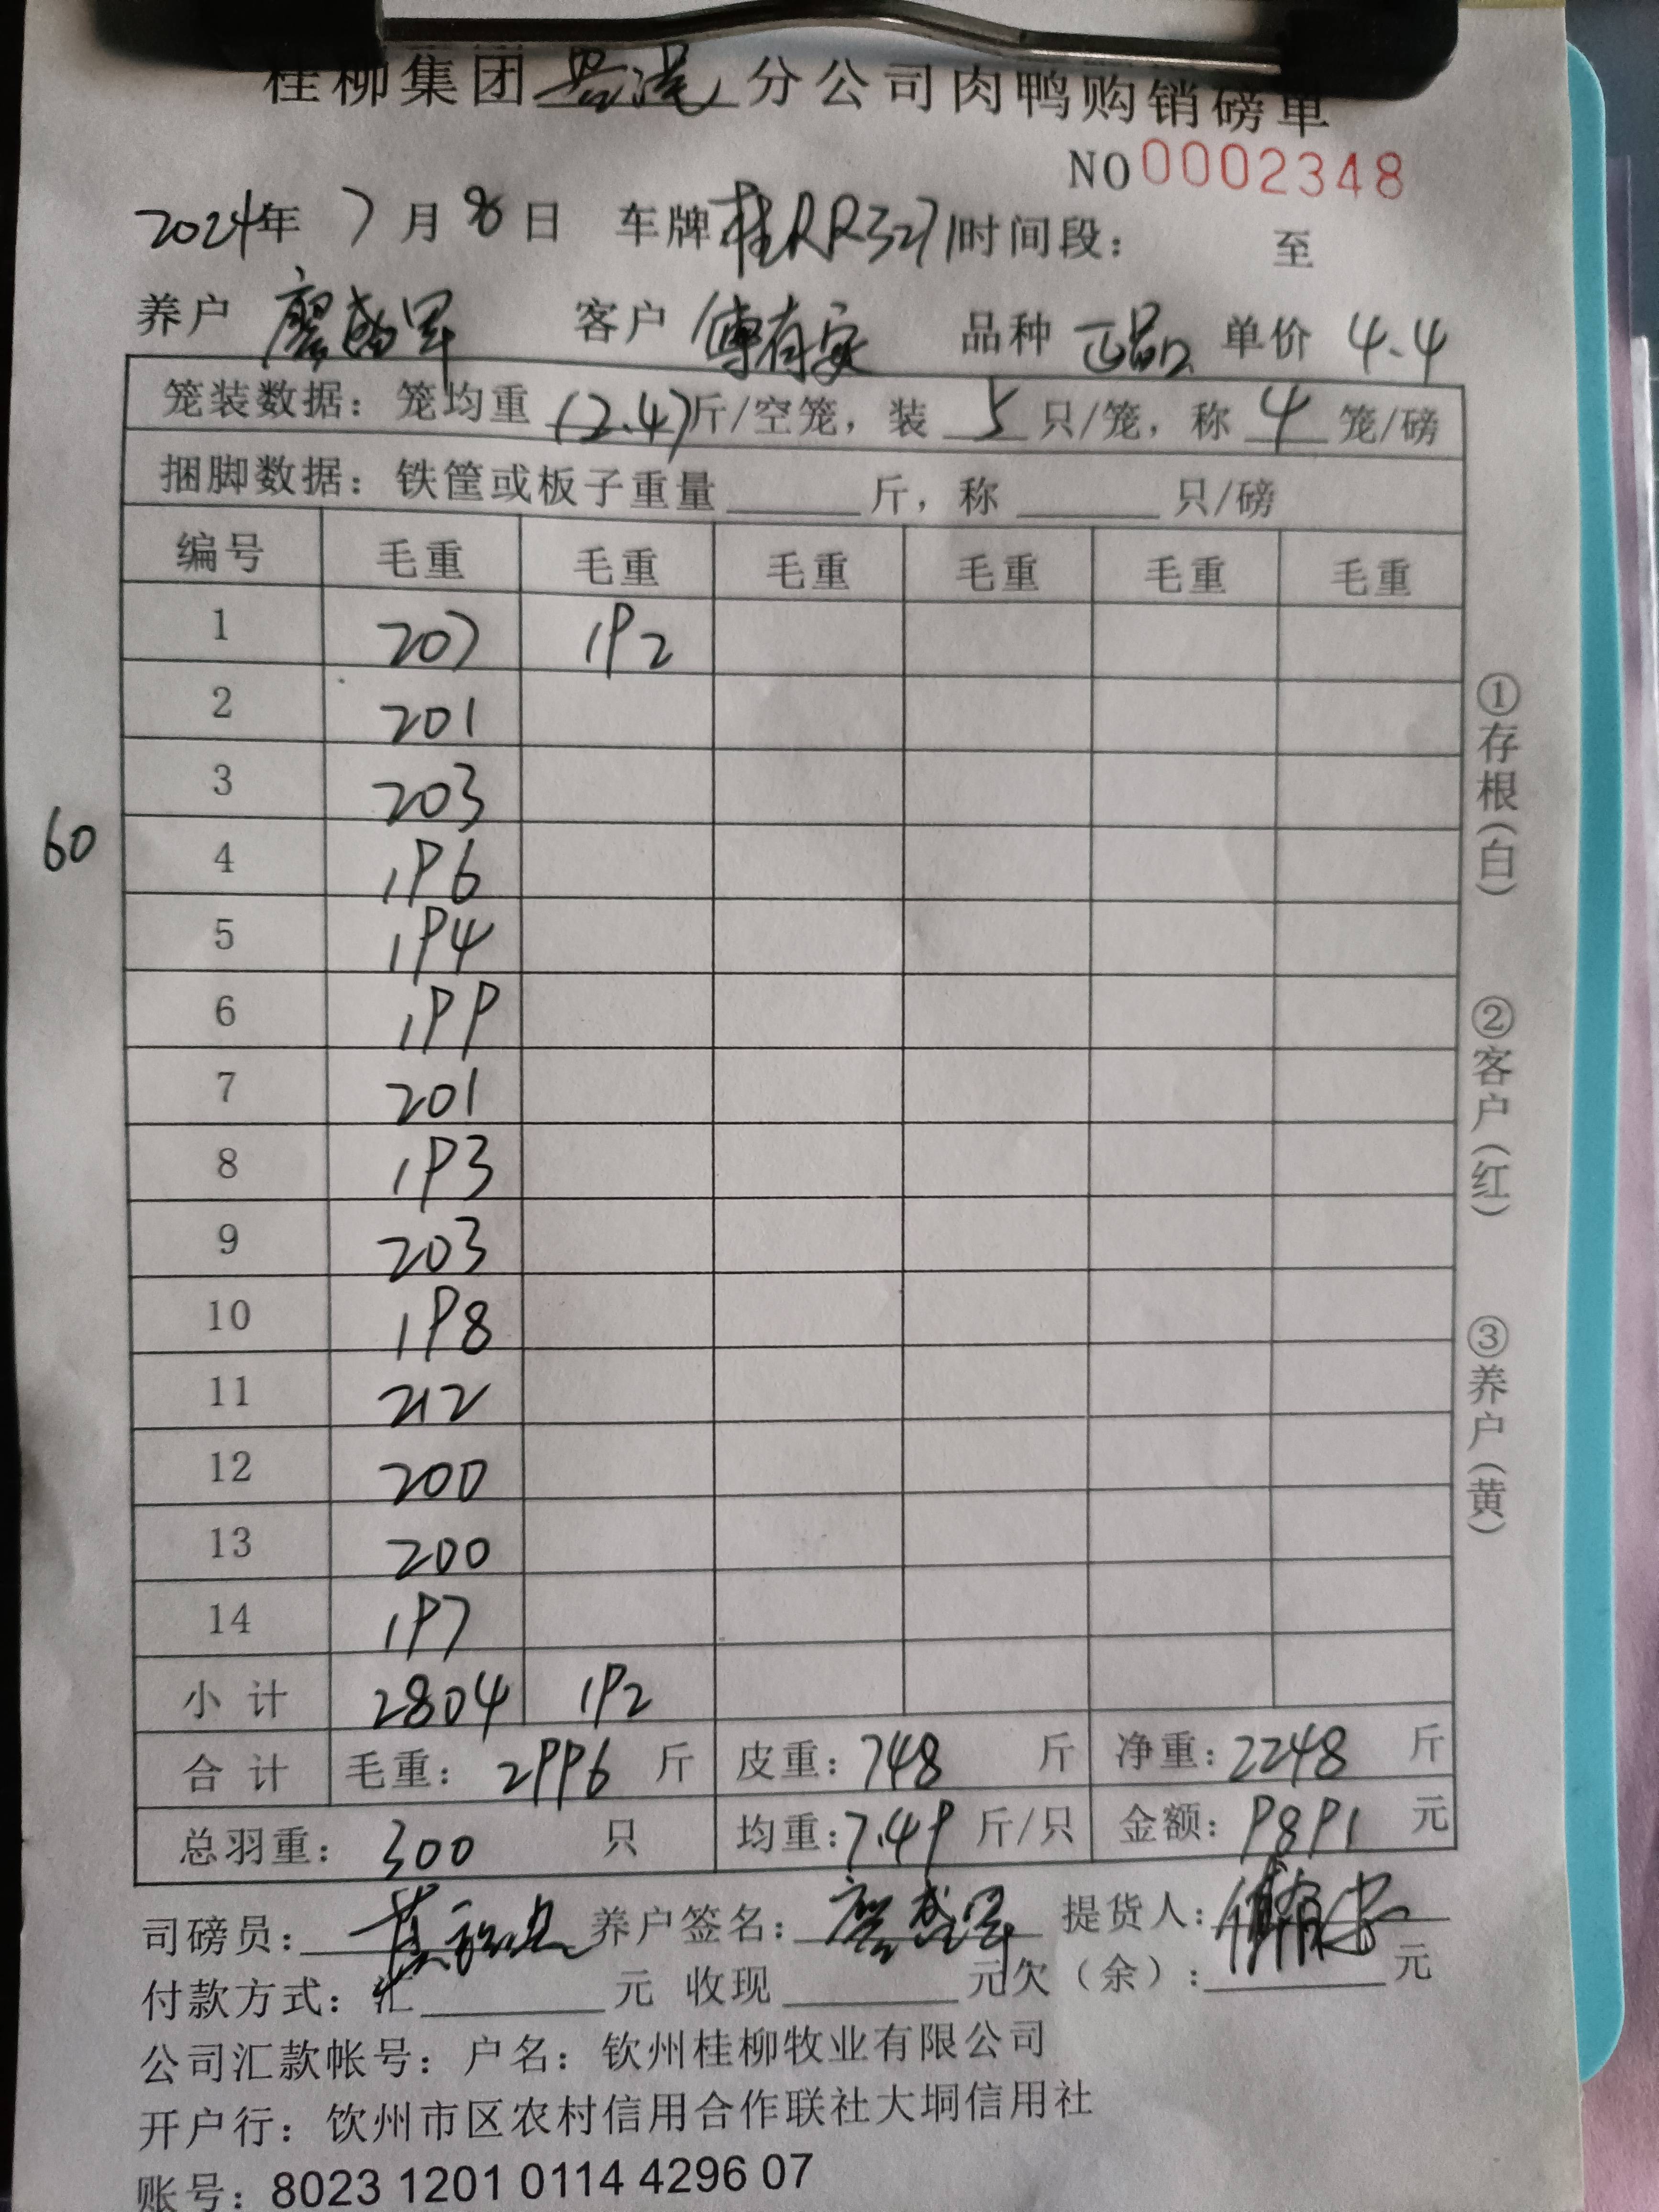 桂柳集团 分公司肉鸭购销磅单
NO 0002348
2024年 7 月 8 日 车牌 桂RR3271 时间段： 至
养户 廖 军 客户 傅有安 品种 正品 单价 4.4
笼装数据：笼均重 12.47 斤/空笼，装 5 只/笼，称 4 笼/磅
捆脚数据：铁筐或板子重量 斤，称 只/磅
编号 毛重 毛重 毛重 毛重 毛重 毛重
1 207 192
2 201
3 203
60
4 196
5 194
6 199
7 201
8 193
9 203
10 198
11 212
12 200
13 200
14 197
小计 2804 192
合计 毛重：2996 斤 皮重：748 斤 净重：2248 斤
总羽重：300 只 均重：7.49 斤/只 金额：9891 元
司磅员： 养户签名：廖 军 提货人：傅有安
付款方式：汇 元 收现 元欠（余）： 元
公司汇款帐号：户名：钦州桂柳牧业有限公司
开户行：饮州市区农村信用合作联社大垌信用社
账号：8023 1201 0114 4296 07
①存根（白）
②客户（红）
③养户（黄）